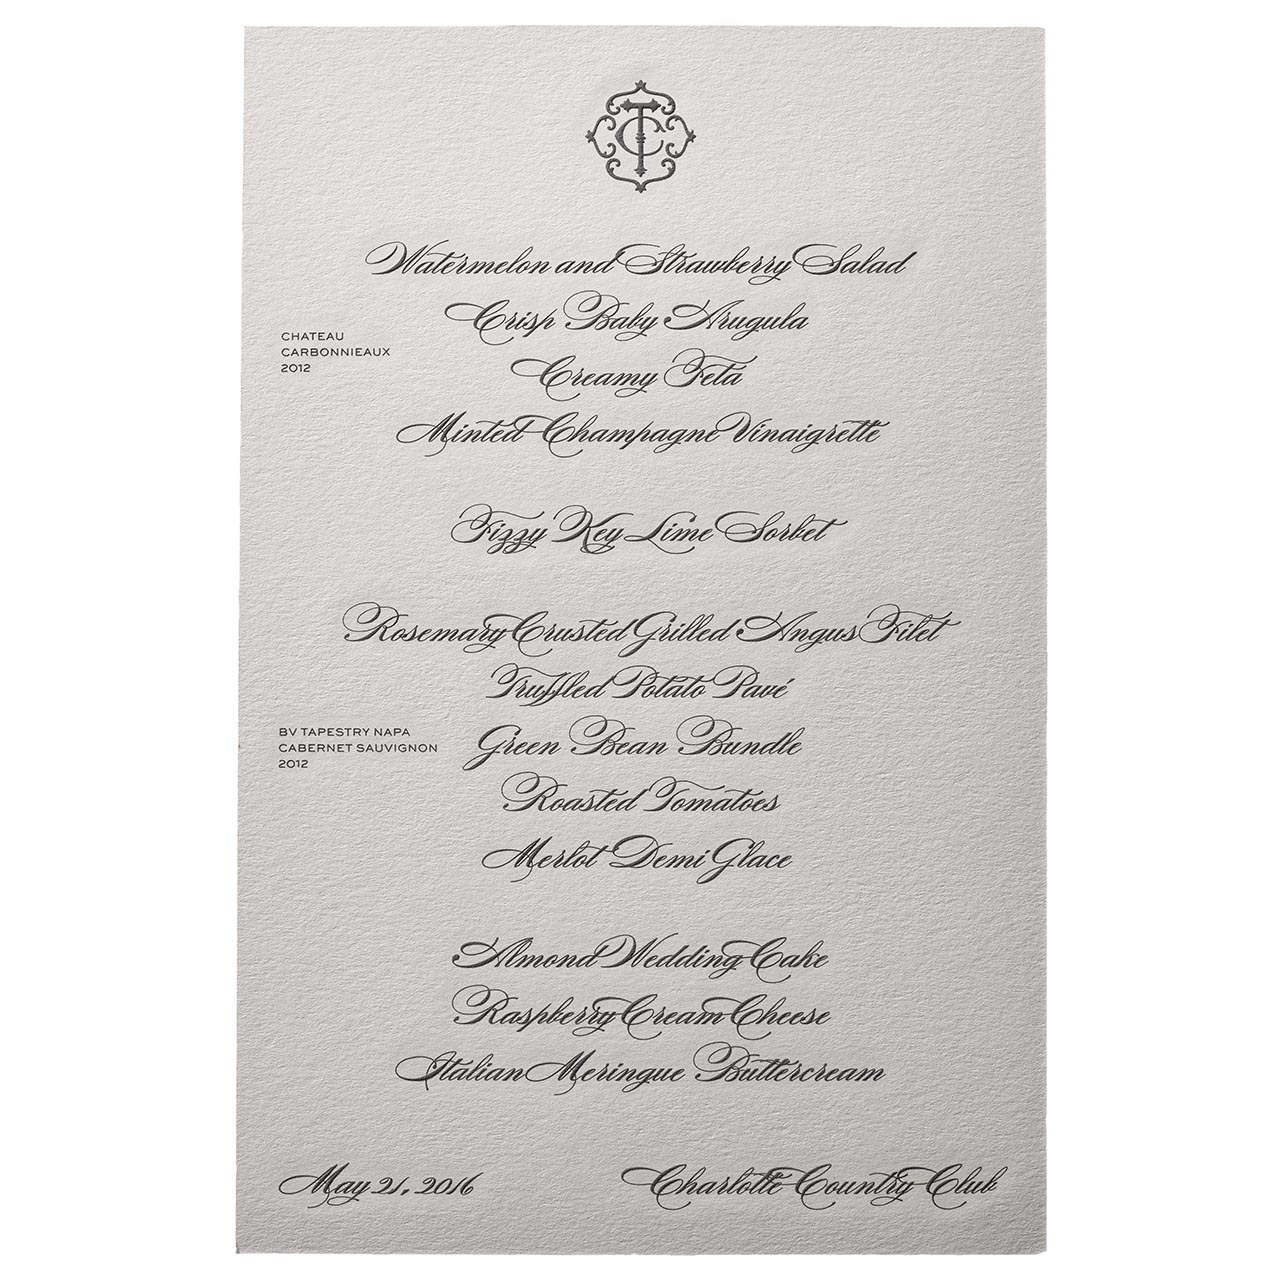 TC
Watermelon and Strawberry Salad
Crisp Baby Arugula
CHATEAU
CARBONNIEAUX
2012
Creamy Feta
Minted Champagne Vinaigrette
Fizzy Key Lime Sorbet
Rosemary Crusted Grilled Angus Filet
Truffled Potato Pavé
BV TAPESTRY NAPA
CABERNET SAUVIGNON
2012
Green Bean Bundle
Roasted Tomatoes
Merlot Demi Glace
Almond Wedding Cake
Raspberry Cream Cheese
Italian Meringue Buttercream
May 21, 2016
Charlotte Country Club